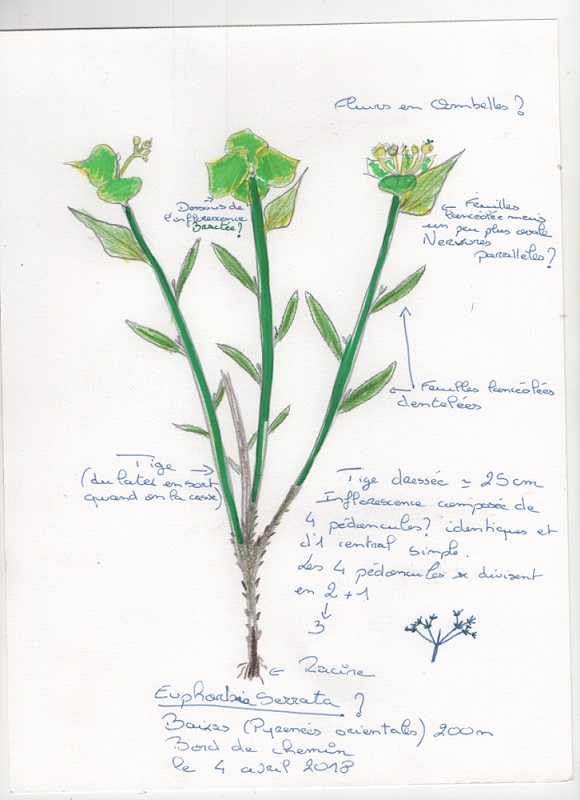 Fleurs en Ombelles ?
Dessous de
l'inflorescence
Bractée ?
← Feuilles
lancéolée mais
un peu plus ovale
Nervures
parallèles ?
← Feuilles lancéolées
dentelées
Tige →
(du latex en sort
quand on la casse)
Tige dressée ≃ 25cm
Inflorescence composée de
4 pédoncules ? identiques et
d'1 central simple.
Les 4 pédoncules se divisent
en 2 + 1
↓
3
← Racine
Euphorbia Serrata ?
Baixas (Pyrenées orientales) 200m
Bord de chemin
le 4 avril 2018